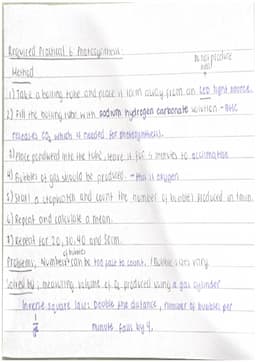 Required Practical 6 Photosynthesis
does not produce heat
Method
1) Take a boiling tube and place it 10cm away from an LED light source.
2) Fill the boiling tube with sodium hydrogen carbonate solution - this
releases CO2 which is needed for photosynthesis.
3) Place pondweed into the tube, leave it for 5 minutes to acclimatise
4) Bubbles of gas should be produced - this is oxygen
5) Start a stopwatch and count the number of bubbles produced in 1 min.
6) Repeat and calculate a mean.
7) Repeat for 20, 30, 40 and 50cm.
Problems: Number of bubbles can be too fast to count. / Bubble sizes vary
Solved by: measuring volume of O2 produced using a gas cylinder
Inverse square law: Double the distance, number of bubbles per
minute falls by 4.